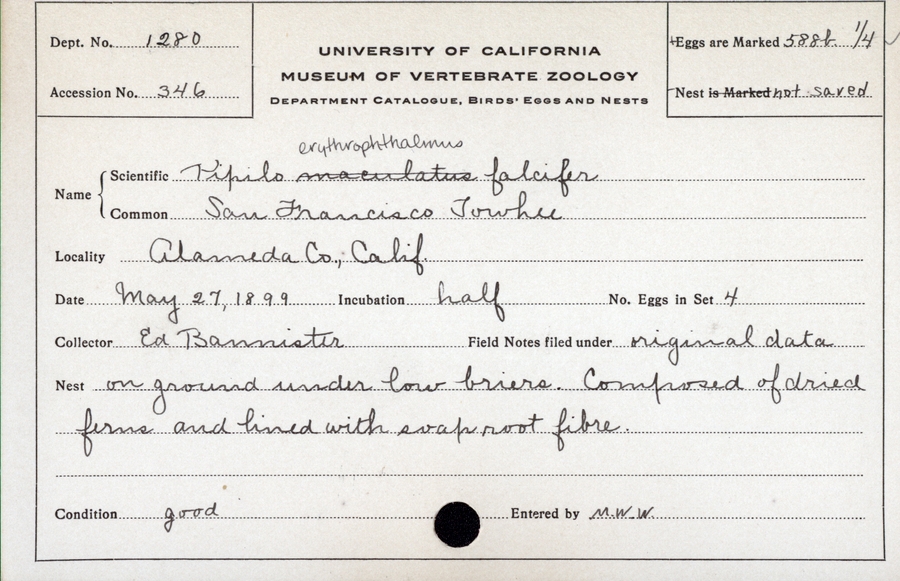 Dept. No. 1280
Accession No. 346
UNIVERSITY OF CALIFORNIA
MUSEUM OF VERTEBRATE ZOOLOGY
DEPARTMENT CATALOGUE, BIRDS' EGGS AND NESTS
Eggs are Marked 588b 1/4
Nest is Marked not saved
erythrophthalmus
Name { Scientific Pipilo maculatus falcifer
Common San Francisco Towhee
Locality Alameda Co., Calif.
Date May 27, 1899 Incubation half No. Eggs in Set 4
Collector Ed Bannister Field Notes filed under original data
Nest on ground under low briers. Composed of dried
ferns and lined with soap root fibre.
Condition good Entered by M.W.W.